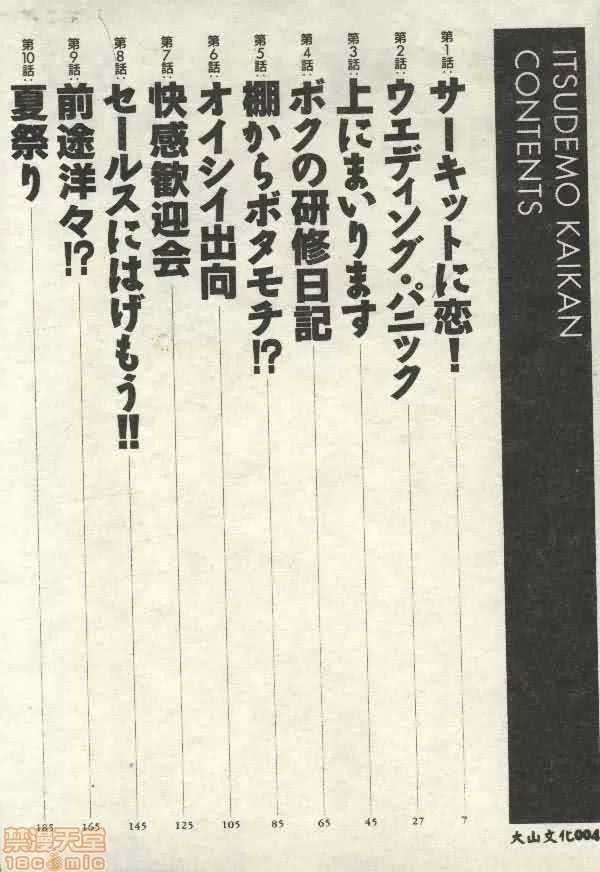 ITSUDEMO KAIKAN
CONTENTS
第1話:サーキットに恋! 7
第2話:ウエディング・パニック 27
第3話:上にまいります 45
第4話:ボクの研修日記 65
第5話:棚からボタモチ!? 85
第6話:オイシイ出向 105
第7話:快感歓迎会 125
第8話:セールスにはげもう!! 145
第9話:前途洋々!? 165
第10話:夏祭り 185
大山文化004
禁漫天堂
18comic